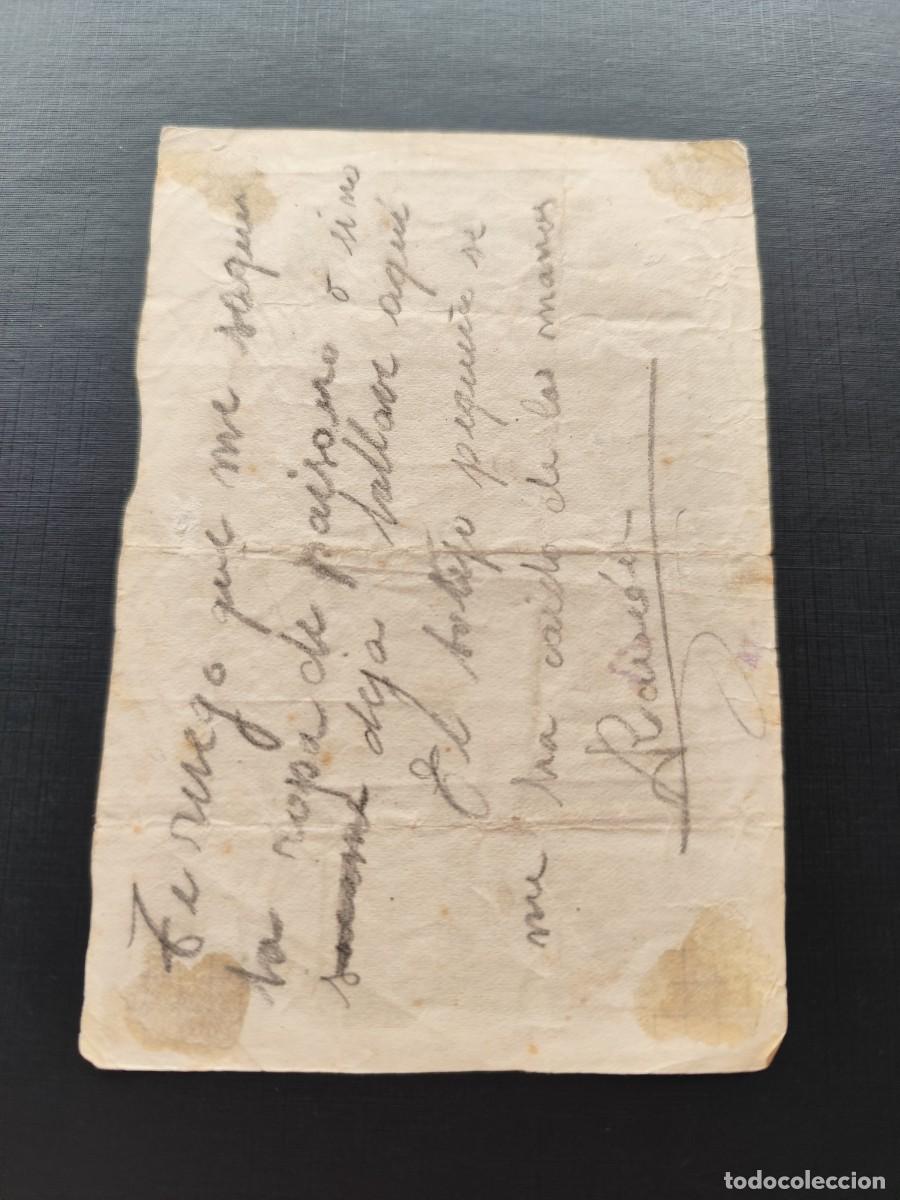 Te ruego que me saquen
la ropa de paisano o sino
deja llave aquí
El botijo pequeño se
me ha caido de las manos
todocoleccion